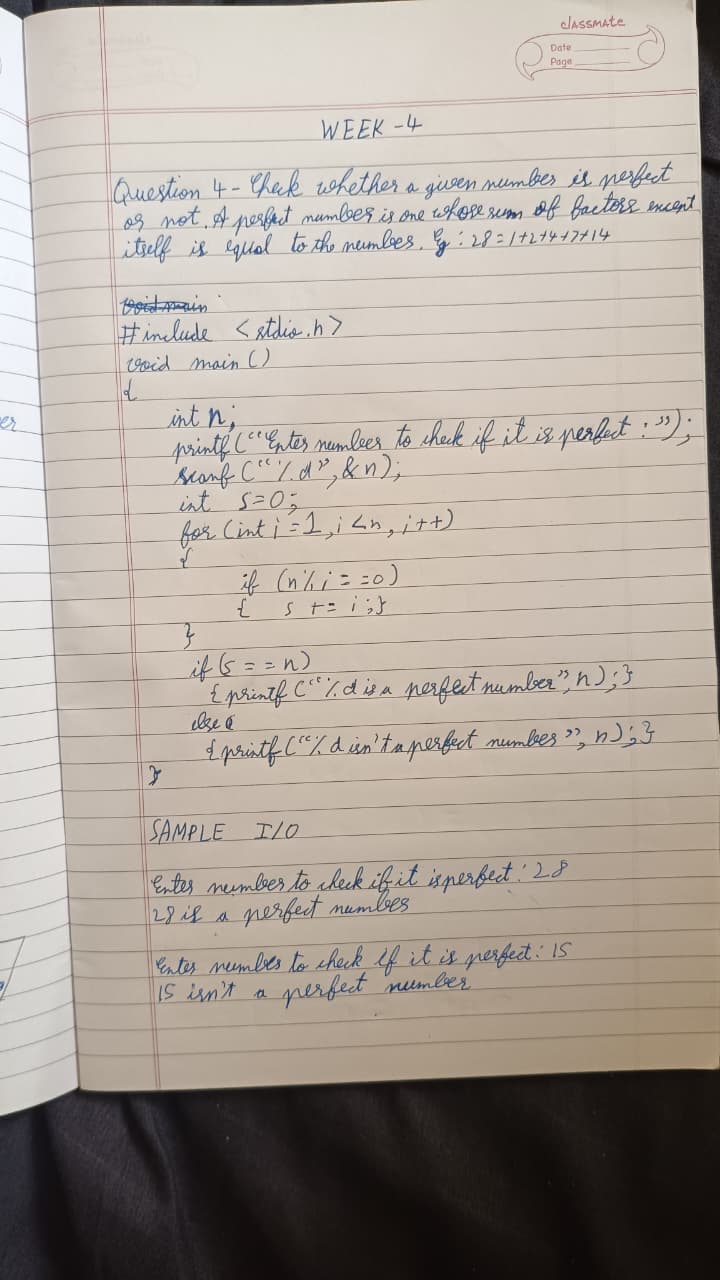 classmate
Date
Page
WEEK - 4
Question 4 - Check whether a given number is perfect
or not. A perfect number is one whose sum of factors except
itself is equal to the number. Eg : 28 = 1+2+4+7+14
void main
#include <stdio.h>
void main ()
{
int n;
printf (“Enter number to check if it is perfect : ”);
scanf (“%d”, &n);
int s=0;
for (int i = 1, i < n, i++)
{
if (n % i == 0)
{ s += i ;}
}
if (s == n)
{ printf (“%d is a perfect number”, n) ; }
else
{ printf (“%d isn't a perfect number”, n) ; }
}
SAMPLE I/O
Enter number to check if it is perfect : 28
28 is a perfect number
Enter number to check if it is perfect : 15
15 isn't a perfect number